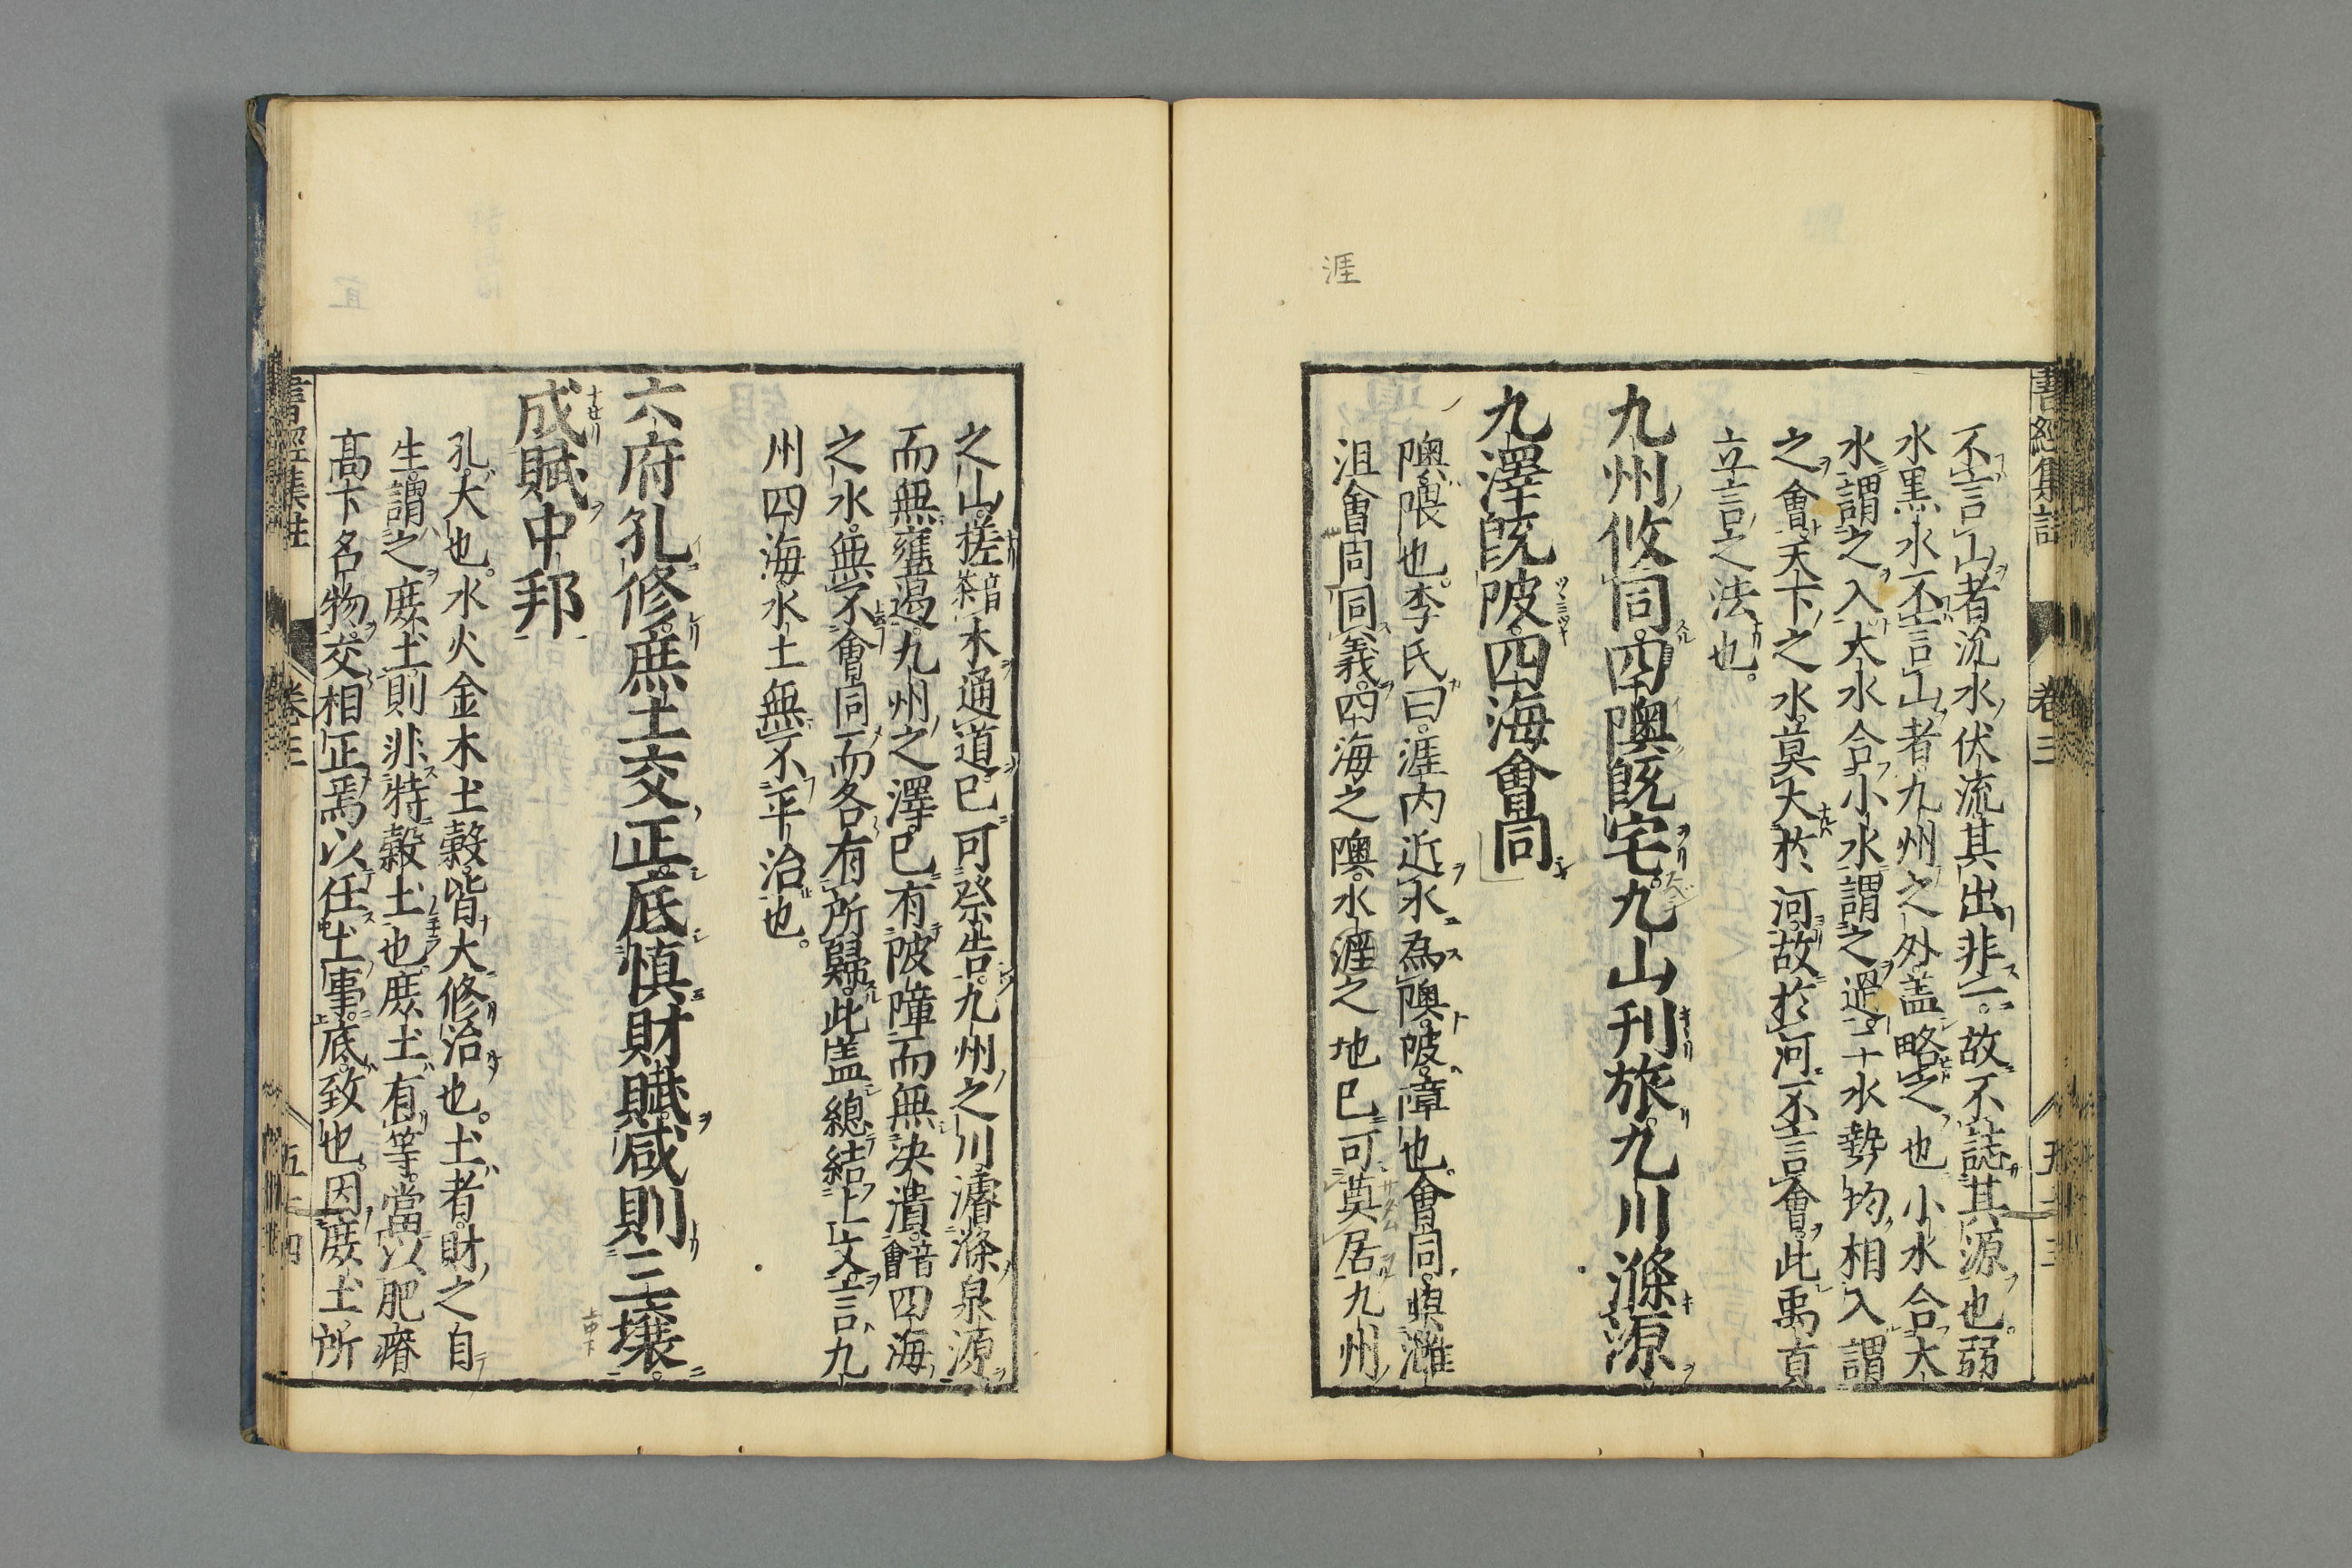 涯
書經集註 卷三 五十三
不言山者沇水伏流其出非一故不誌其源也弱
水黒水不言山者九州之外盖略之也小水合大
水謂之入大水合小水謂之過二水勢均相入謂
之會天下之水莫大於河故於河不言會此禹貢
立言之法也
九州攸同四隩既宅九山刊旅九川滌源
九澤既陂四海會同
隩隈也李氏曰涯内近水為隩陂障也會同與灉
沮會同同義四海之隩水涯之地已可奠居九州
之山槎音茶木通道已可祭告九州之川濬滌泉源
而無壅遏九州之澤已有陂障而無決潰四海
之水無不會同而各有所歸此盖總結上文言九
州四海水土無不平治也
六府孔修庶土交正底慎財賦咸則三壤
成賦中邦
孔大也水火金木土穀皆大修治也土者財之自
生謂之庶土則非特穀土也庶土有等當以肥瘠
高下名物交相正焉以任土事底致也因庶土所
書經集註 卷三 五十四